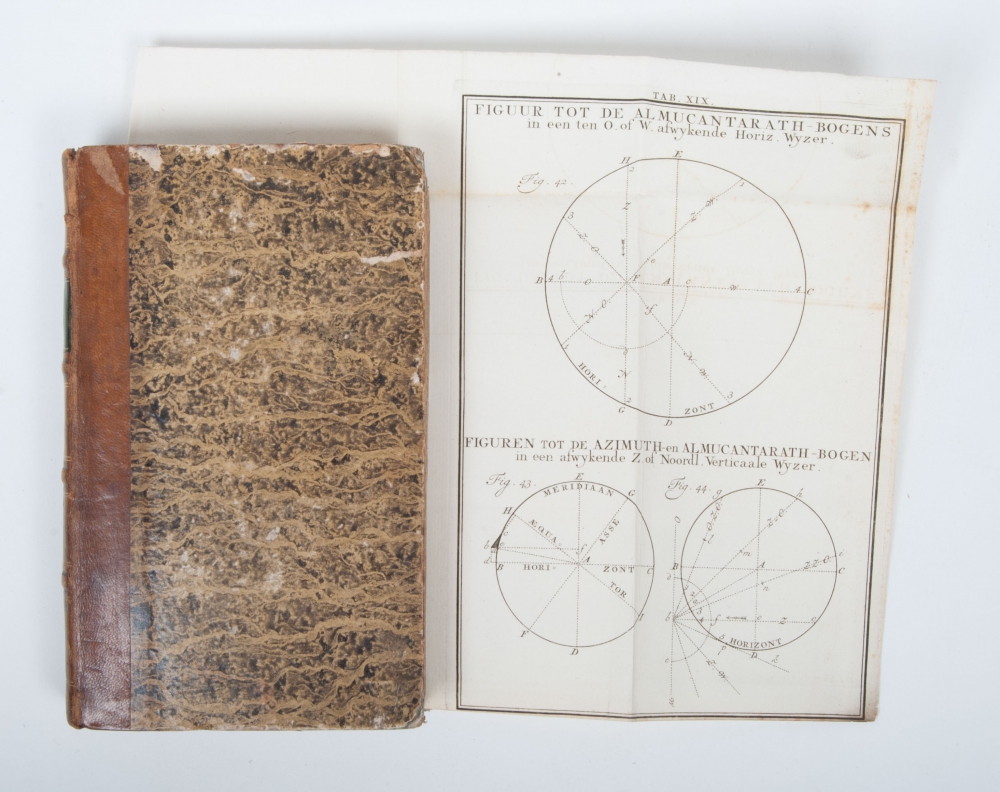 TAB. XIX.
FIGUUR TOT DE ALMUCANTARATH-BOGENS
in een ten O. of W. afwykende Horiz. Wyzer.
Fig. 42.
H E
2 1
Z Z W
3
Z O
B 4 b O F A c W 4 C
N O f
1 d N W
HORI- N 3
G 2 ZONT
D
FIGUREN TOT DE AZIMUTH-en ALMUCANTARATH-BOGEN
in een afwykende Z. of Noordl. Verticaale Wyzer.
Fig. 43.
E
MERIDIAAN G
H
ÆQUA- ASSE
c
b e f
d B HORI- A ZONT C
TOR
I
F
D
Fig. 44.
g E h
O Z.O.
O.Z.O. l
m
i
B A Z.Z.O. C
d n
b f e Z c
HORIZONT
D